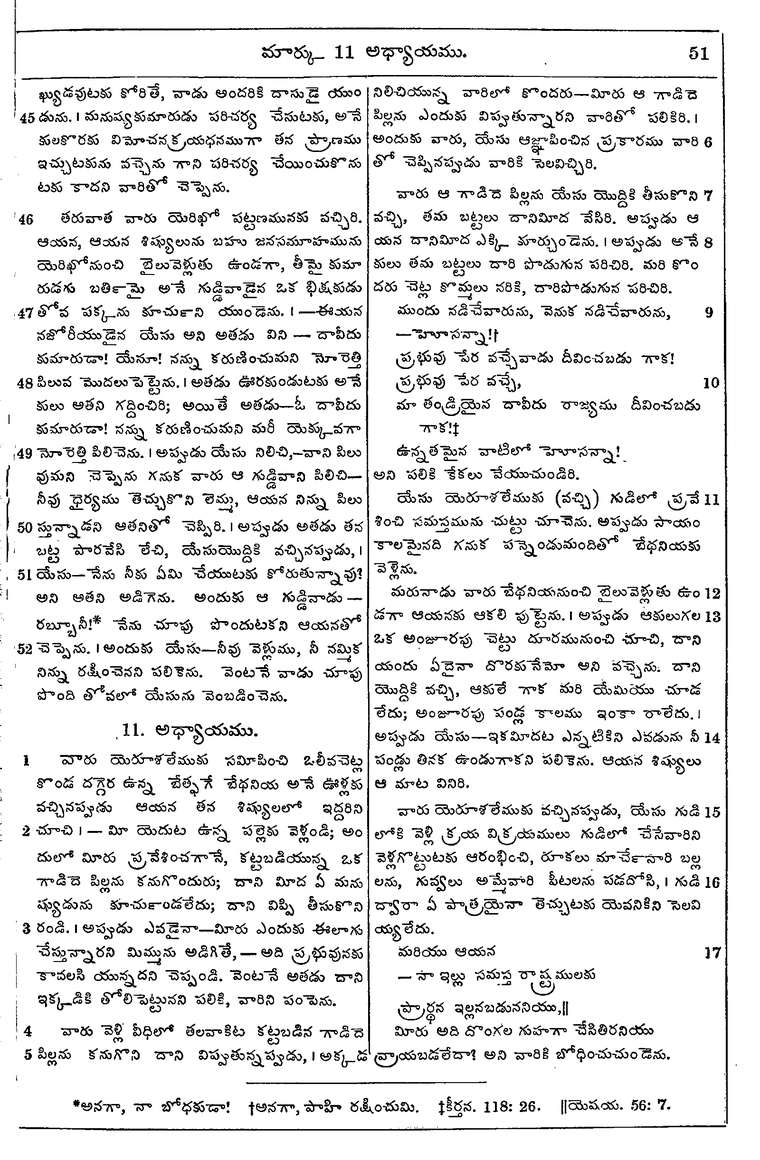 మార్కు 11 అధ్యాయము. 51
ఖ్యుడవుటకు కోరితే, వాడు అందరికి దాసుడై యుం
45 డును. । మనుష్యకుమారుడు పరిచర్య చేసుటకు, అనే
కులకొరకు విమోచనక్రయధనముగా తన ప్రాణము
ఇచ్చుటకును వచ్చెను గాని పరిచర్య చేయించుకొను
టకు కాదని వారితో చెప్పెను.
46 తరువాత వారు యెరిఖో పట్టణమునకు వచ్చిరి.
ఆయన, ఆయన శిష్యులును బహు జనసమూహమును
యెరిఖోనుంచి బైలువెళ్లుతు ఉండగా, తీమై కుమా
రుడగు బర్తిమై అనే గుడ్డివాడైన ఒక భిక్షకుడు
47 తోవ పక్కను కూర్చుని యుండెను. । —ఈయన
నజోరీయుడైన యేసు అని అతడు విని — దావీదు
కుమారుడా! యేసూ! నన్ను కరుణించుమని మోరెత్తి
48 పిలువ మొదలుపెట్టెను. । అతడు ఊరకుండుటకు అనే
కులు అతని గద్దించిరి; అయితే అతడు—ఓ దావీదు
కుమారుడా! నన్ను కరుణించుమని మరీ యెక్కువగా
49 మోరెత్తి పిలిచెను. । అప్పుడు యేసు నిలిచి,—వాని పిలు
వుమని చెప్పెను గనుక వారు ఆ గుడ్డివాని పిలిచి—
నీవు ధైర్యము తెచ్చుకొని లెమ్ము, ఆయన నిన్ను పిలు
50 స్తున్నాడని అతనితో చెప్పిరి. । అప్పుడు అతడు తన
బట్ట పారవేసి లేచి, యేసుయొద్దికి వచ్చినప్పుడు, ।
51 యేసు—నేను నీకు ఏమి చేయుటకు కోరుతున్నావు?
అని అతని అడిగెను. అందుకు ఆ గుడ్డివాడు —
రబ్బూనీ!* నేను చూపు పొందుటకని ఆయనతో
52 చెప్పెను. । అందుకు యేసు—నీవు వెళ్లుము, నీ నమ్మిక
నిన్ను రక్షించెనని పలికెను. వెంటనే వాడు చూపు
పొంది తోవలో యేసును వెంబడించెను.
11. అధ్యాయము.
1 వారు యెరూశలేముకు సమీపించి ఒలీవచెట్ల
కొండ దగ్గెర ఉన్న బేత్ఫగే బేథనియ అనే ఊళ్లకు
వచ్చినప్పుడు ఆయన తన శిష్యులలో ఇద్దరిని
2 చూచి । — మీ యెదుట ఉన్న పల్లెకు వెళ్లండి; అం
దులో మీరు ప్రవేశించగానే, కట్టబడియున్న ఒక
గాడిదె పిల్లను కనుగొందురు; దాని మీద ఏ మను
ష్యుడును కూర్చుండలేదు; దాని విప్పి తీసుకొని
3 రండి. । అప్పుడు ఎవడైనా—మీరు ఎందుకు ఈలాగు
చేస్తున్నారని మిమ్మును అడిగితే, — అది ప్రభువునకు
కావలసి యున్నదని చెప్పండి. వెంటనే అతడు దాని
ఇక్కడికి తోలిపెట్టునని పలికి, వారిని పంపెను.
4 వారు వెళ్లి వీధిలో తలవాకిట కట్టబడిన గాడిదె
5 పిల్లను కనుగొని దాని విప్పుతున్నప్పుడు, । అక్కడ
నిలిచియున్న వారిలో కొందరు—మీరు ఆ గాడిదె
పిల్లను ఎందుకు విప్పుతున్నారని వారితో పలికిరి. ।
అందుకు వారు, యేసు ఆజ్ఞాపించిన ప్రకారము వారి 6
తో చెప్పినప్పుడు వారికి సెలవిచ్చిరి.
వారు ఆ గాడిదె పిల్లను యేసు యొద్దికి తీసుకొని 7
వచ్చి, తమ బట్టలు దానిమీద వేసిరి. అప్పుడు ఆ
యన దానిమీద ఎక్కి కూర్చుండెను. । అప్పుడు అనే 8
కులు తమ బట్టలు దారి పొడుగున పరిచిరి. మరి కొం
దరు చెట్ల కొమ్మలు నరికి, దారిపొడుగున పరిచిరి.
ముందు నడిచేవారును, వెనుక నడిచేవారును, 9
—హోసన్నా!†
ప్రభువు పేర వచ్చేవాడు దీవించబడు గాక!
ప్రభువు పేర వచ్చే, 10
మా తండ్రియైన దావీదు రాజ్యము దీవించబడు
గాక!‡
ఉన్నతమైన వాటిలో హోసన్నా!
అని పలికి కేకలు వేయుచుండిరి.
యేసు యెరూశలేముకు (వచ్చి) గుడిలో ప్రవే 11
శించి సమస్తమును చుట్టు చూచెను. అప్పుడు సాయం
కాలమైనది గనుక పన్నెండుమందితో బేథనియకు
వెళ్లెను.
మరునాడు వారు బేథనియనుంచి బైలువెళ్లుతు ఉం 12
డగా ఆయనకు ఆకలి పుట్టెను. । అప్పుడు ఆకులుగల 13
ఒక అంజూరపు చెట్టు దూరమునుంచి చూచి, దాని
యందు ఏదైనా దొరకునేమో అని వచ్చెను. దాని
యొద్దికి వచ్చి, ఆకులే గాక మరి యేమియు చూడ
లేదు; అంజూరపు పండ్ల కాలము ఇంకా రాలేదు. ।
అప్పుడు యేసు—ఇకమీదట ఎన్నటికిని ఎవడును నీ 14
పండ్లు తినక ఉండుగాకని పలికెను. ఆయన శిష్యులు
ఆ మాట వినిరి.
వారు యెరూశలేముకు వచ్చినప్పుడు, యేసు గుడి 15
లోకి వెళ్లి క్రయ విక్రయములు గుడిలో చేసేవారిని
వెళ్లగొట్టుటకు ఆరంభించి, రూకలు మార్చేవారి బల్ల
లను, గువ్వలు అమ్మేవారి పీటలను పడదోసి, । గుడి 16
ద్వారా ఏ పాత్రయైనా తెచ్చుటకు యెవనికిని సెలవి
య్యలేదు.
మరియు ఆయన 17
— నా ఇల్లు సమస్త రాష్ట్రములకు
ప్రార్థన ఇల్లనబడుననియు,||
మీరు అది దొంగల గుహగా చేసితిరనియు
వ్రాయబడలేదా? అని వారికి బోధించుచుండెను.
*అనగా, నా బోధకుడా! †అనగా, పాహి రక్షించుమి. ‡కీర్తన. 118: 26. ||యెషయ. 56: 7.